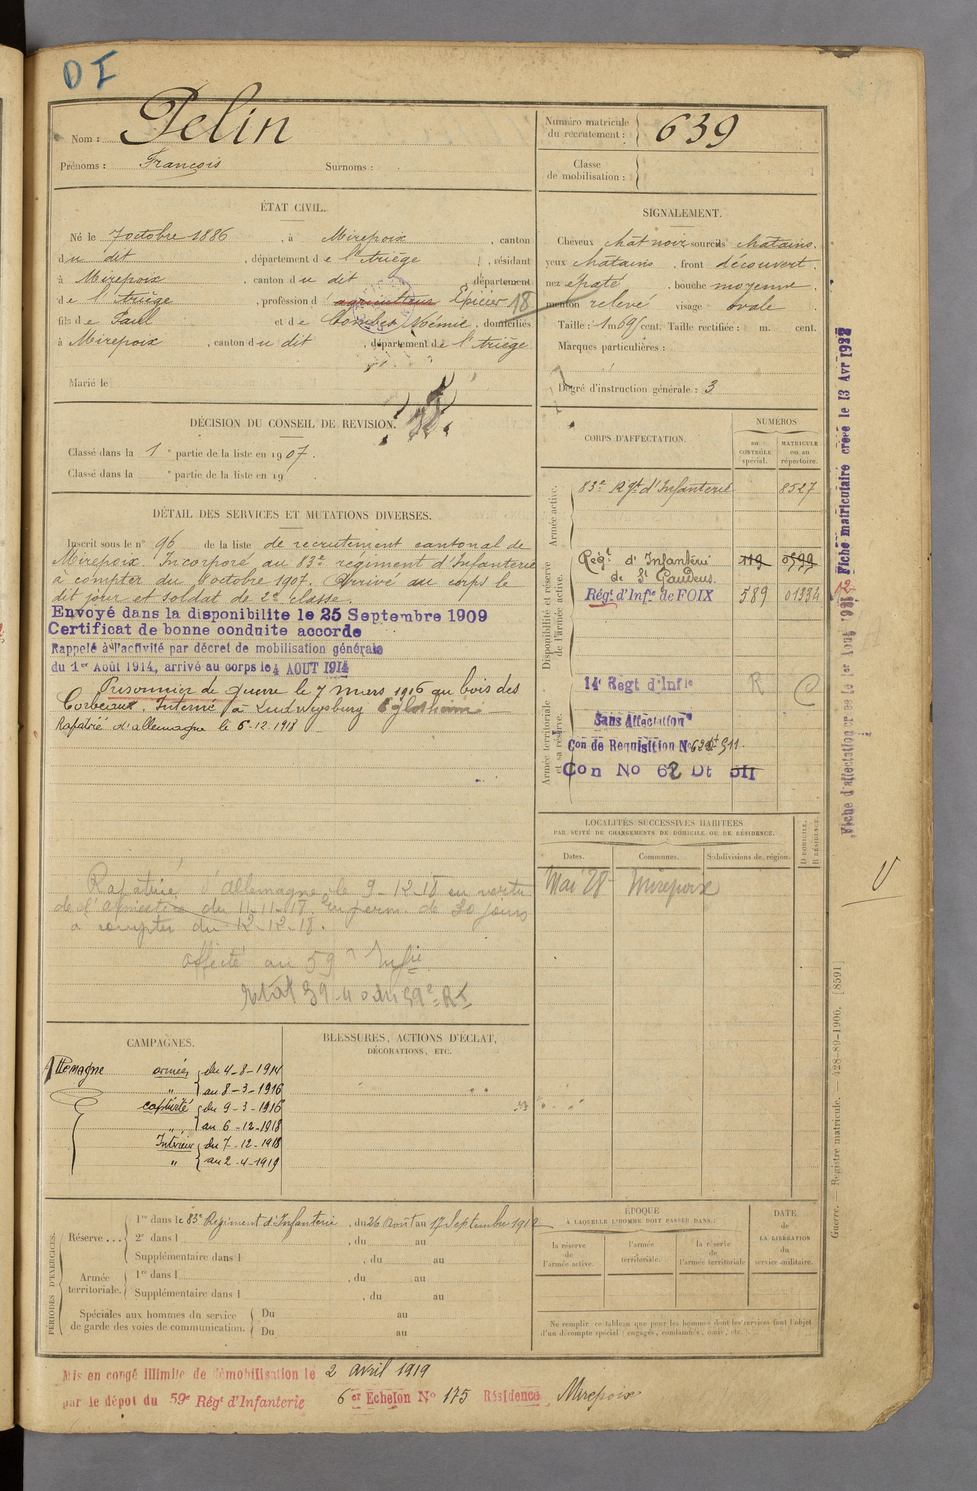 D I
Nom : Pelin
Prénoms : François Surnoms :
Numéro matricule du recrutement : 639
Classe de mobilisation :
ÉTAT CIVIL.
Né le 7 octobre 1886, à Mirepoix, canton
du dit, département de l'Ariège, résidant
à Mirepoix, canton du dit département
de l'Ariège, profession d agriculteur Epicier 18
fils de Paul et de Combes Noémie, domiciliés
à Mirepoix, canton du dit, département de l'Ariège
Marié le
SIGNALEMENT.
Cheveux chât noir sourcils châtains.
yeux châtains, front découvert.
nez épaté, bouche moyenne
menton relevé visage ovale
Taille : 1 m 69 cent. Taille rectifiée : m. cent.
Marques particulières :
Degré d'instruction générale : 3
DÉCISION DU CONSEIL DE REVISION.
Classé dans la 1re partie de la liste en 1907.
Classé dans la e partie de la liste en 19
DÉTAIL DES SERVICES ET MUTATIONS DIVERSES.
Inscrit sous le n° 96 de la liste de recrutement cantonal de
Mirepoix. Incorporé au 83e régiment d'Infanterie
à compter du octobre 1907. Arrivé au corps le
dit jour et soldat de 2e classe.
Envoyé dans la disponibilite le 25 Septembre 1909
Certificat de bonne conduite accorde
Rappelé à l'activité par décret de mobilisation générale
du 1er Août 1914, arrivé au corps le 4 AOUT 1914
Prisonnier de guerre le 7 mars 1916 au bois des
Corbeaux. Interné à Ludwigsburg Eglosheim
Rapatrié d'allemagne le 6-12-1918
Rapatrié d'Allemagne le 9-12-18 en vertu
de l'armistice du 11-11-18. En perm de 30 jours
à compter du 12-12-18.
affecté au 59e Infie
CORPS D'AFFECTATION.
NUMÉROS
au CONTRÔLE spécial.
MATRICULE ou au répertoire.
Armée active.
83e Rgt d'Infanterie 8527
Disponibilité et réserve de l'armée active.
Régt d'Infanterie de St Gaudens.
Régt d'Infie de FOIX 589 01334
Armée territoriale et sa réserve.
14e Regt d'Infie R
Sans Affectation
Con de Requisition N° 62 Dt 511.
Con No 62 Dt 511
LOCALITÉS SUCCESSIVES HABITÉES
PAR SUITE DE CHANGEMENTS DE DOMICILE OU DE RÉSIDENCE.
Dates. Communes. Subdivisions de région. D DOMICILE. R RÉSIDENCE.
Mai 28 Mirepoix
CAMPAGNES.
Allemagne armées du 4-8-1914
" au 8-3-1916
captivité du 9-3-1916
" au 6-12-1918
Intérieur du 7-12-1918
" au 2-4-1919
BLESSURES, ACTIONS D'ÉCLAT,
DÉCORATIONS, ETC.
PÉRIODES D'EXERCICES.
Réserve... 1re dans le 83e Régiment d'Infanterie, du 26 Août au 17 Septembre 1912
2e dans l , du au
Supplémentaire dans l , du au
Armée territoriale. 1re dans l , du au
Supplémentaire dans l , du au
Spéciales aux hommes du service de garde des voies de communication. Du au
Du au
ÉPOQUE
À LAQUELLE L'HOMME DOIT PASSER DANS :
la réserve de l'armée active.
l'armée territoriale.
la réserve de l'armée territoriale
DATE de LA LIBÉRATION du service militaire.
Ne remplir ce tableau que pour les hommes dont les services font l'objet
d'un décompte spécial (engagés, condamnés, omis, etc.
Mis en congé illimité de démobilisation le 2 avril 1919
par le dépot du 59e Régt d'Infanterie 6er Echelon N° 175 Résidence Mirepoix
Fiche matriculaire créée le 13 Avr 1922
Guerre. — Registre matricule. — 428-89-1906. [8591]